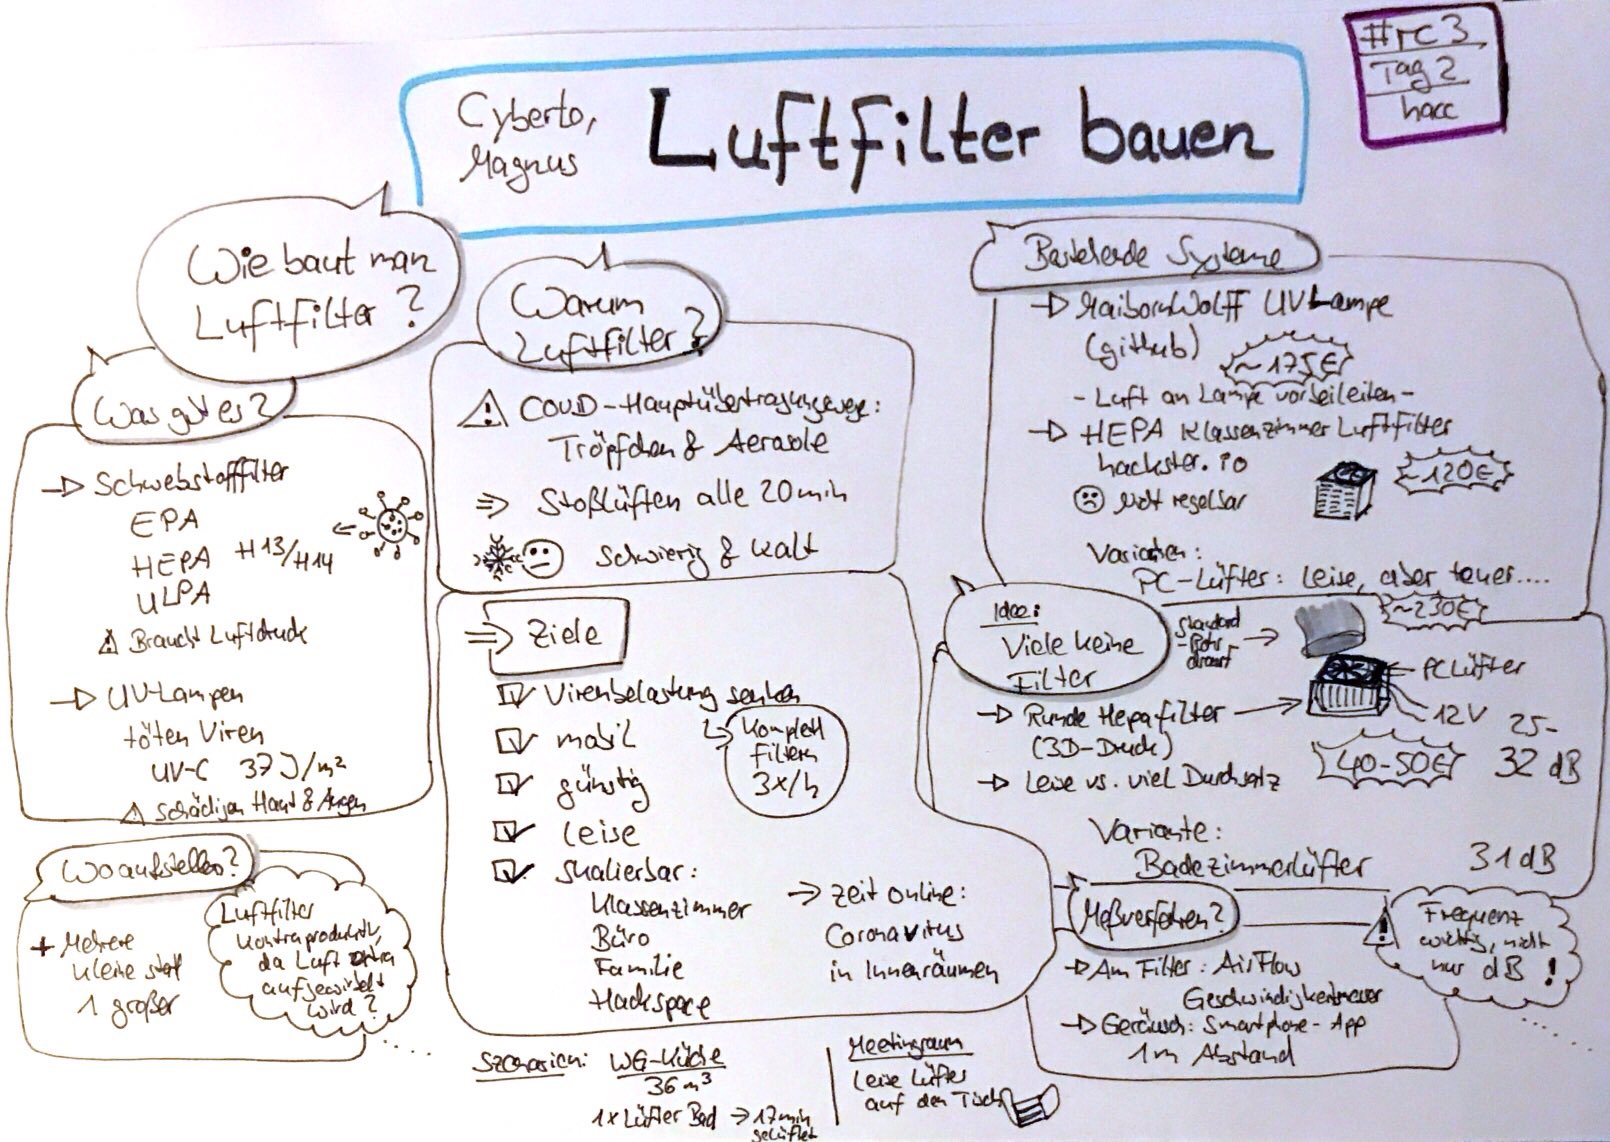 #rc3
Tag 2
hacc
Cyberto,
Magnus
Luftfilter bauen
Wie baut man
Luftfilter?
Was gibt es?
→ Schwebstofffilter
EPA
HEPA H13/H14
ULPA
⚠ Braucht Luftdruck
→ UV-Lampen
töten Viren
UV-C 37 J/m²
⚠ Schädigen Haut & Augen
Wo aufstellen?
+ Mehrere
kleine statt
1 großer
Luftfilter
kontraproduktiv,
da Luft extra
aufgewirbelt
wird?
Warum
Luftfilter?
⚠ COVID-Hauptübertragungswege:
Tröpfchen & Aerosole
⇒ Stoßlüften alle 20 min
Schwierig & kalt
⇒ Ziele
☑ Virenbelastung senken
↳ Komplett
filtern
3x/h
☑ mobil
☑ günstig
☑ leise
☑ skalierbar:
Klassenzimmer
Büro
Familie
Hackspace
→ Zeit online:
Coronavirus
in Innenräumen
Szenarien: WG-Küche
36 m³
1x Lüfter Bad → 17 min
gelüftet
Meetingraum
Leise Lüfter
auf den Tisch
Bestehende Systeme
→ MaibornWolff UV-Lampe
(github)
~175€
- Luft an Lampe vorbeileiten -
→ HEPA Klassenzimmer Luftfilter
hackster.io
~120€
☹ Nicht regelbar
Varianten:
PC-Lüfter: Leise, aber teuer....
~230€
Idee:
Viele kleine
Filter
Standard
-Rohr
drauf
→ Runde Hepafilter →
(3D-Druck)
PC Lüfter
12V
→ Leise vs. viel Durchsatz
40-50€
25-
32 dB
Variante:
Badezimmerlüfter
31 dB
Meßverfahren?
→ Am Filter: AirFlow
Geschwindigkeitsmesser
→ Geräusch: Smartphone-App
1m Abstand
⚠ Frequenz
wichtig, nicht
nur dB!